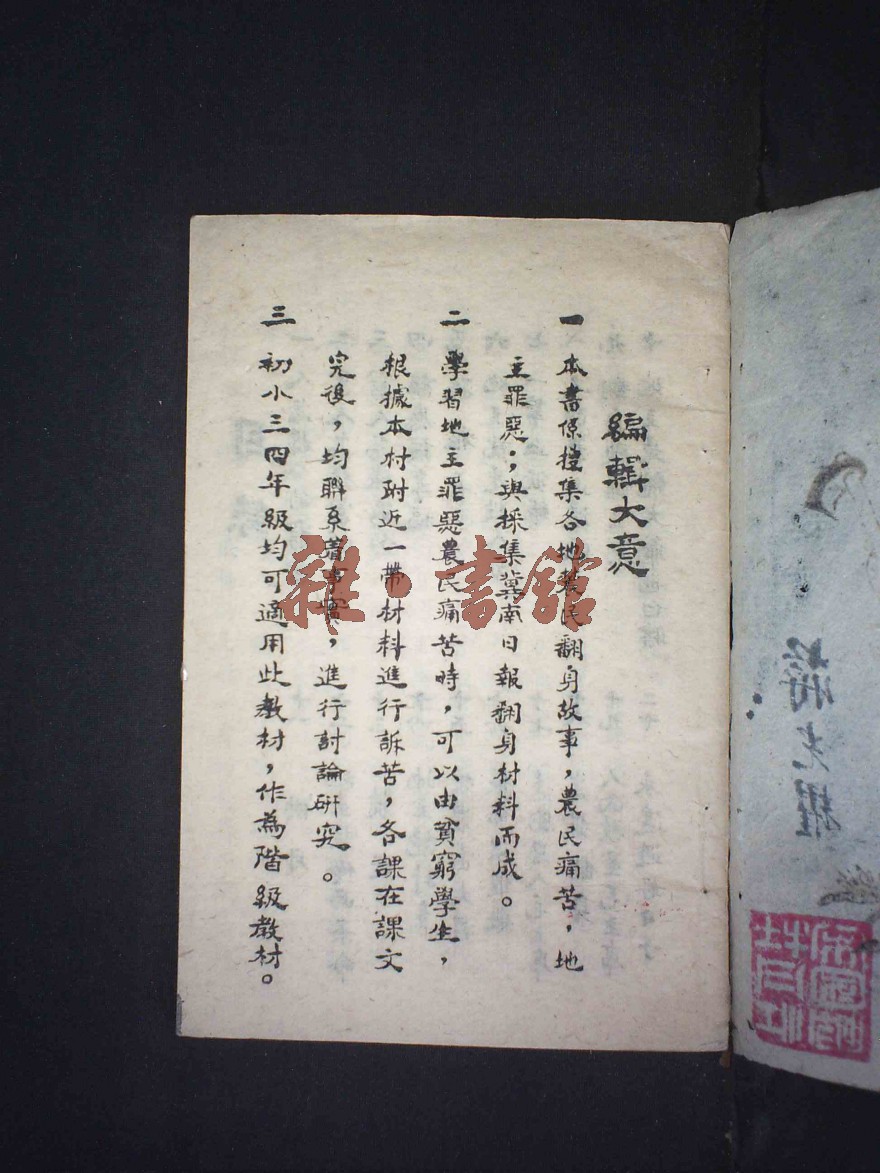 編輯大意
一 本書係搜集各地農民翻身故事，農民痛苦，地
主罪惡；與採集冀南日報翻身材料而成。
二 學習地主罪惡農民痛苦時，可以由貧窮學生，
根據本村附近一帶材料進行訴苦，各課在課文
完後，均聯系着事實，進行討論研究。
三 初小三四年級均可適用此教材，作為階級教材。
雜·書館